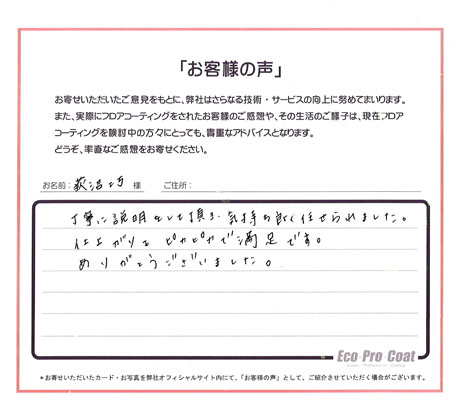 「お客様の声」
お寄せいただいたご意見をもとに、弊社はさらなる技術・サービスの向上に努めてまいります。
また、実際にフロアコーティングをされたお客様のご感想や、その生活のご様子は、現在フロア
コーティングを検討中の方々にとっても、貴重なアドバイスとなります。
どうぞ、率直なご感想をお寄せください。
お名前: 様 ご住所:
丁寧に説明をして頂き、気持ち良く任せられました。
仕上がりもピカピカで満足です。
ありがとうございました。
Eco Pro Coat
*お寄せいただいたカード・お写真を弊社オフィシャルサイト内にて、「お客様の声」として、ご紹介させていただく場合がございます。